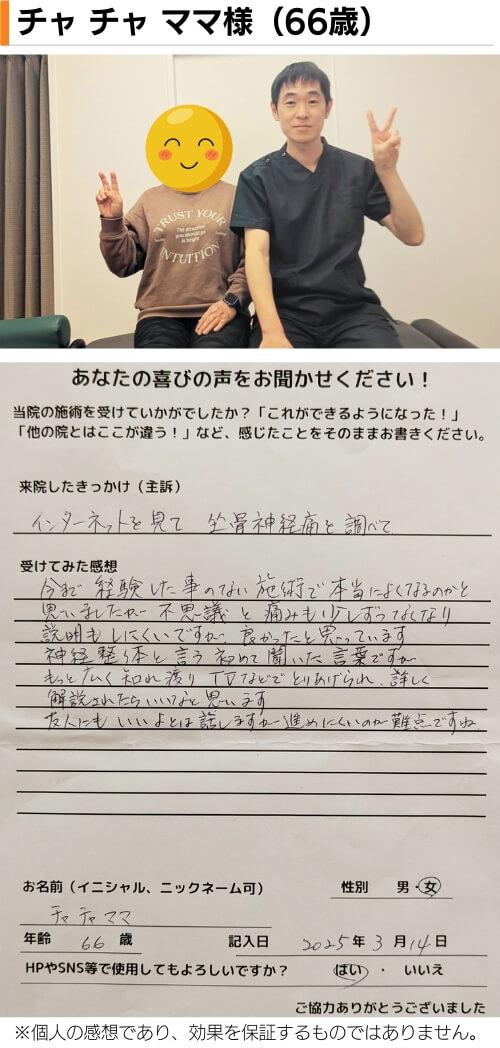 チャ チャ ママ様（66歳）
TRUST YOUR
The direction
you should go
is bright
INTUITION
あなたの喜びの声をお聞かせください！
当院の施術を受けていかがでしたか？「これができるようになった！」
「他の院とはここが違う！」など、感じたことをそのままお書きください。
来院したきっかけ（主訴）
インターネットを見て 坐骨神経痛を調べて
受けてみた感想
今まで 経験した事のない施術で本当によくなるのかと
思いましたが 不思議と 痛みも少しずつなくなり
説明もしにくいですが 良かったと思っています
神経整体と言う初めて聞いた言葉ですが
もっと広く知れ渡りTVなどでとりあげられ、詳しく
解説されたらいいなと思います
友人にもいいよとは話しますが進めにくいのが難点ですね
お名前（イニシャル、ニックネーム可）
性別 男・女
チャチャママ
年齢 66 歳 記入日 2025年 3月14日
HPやSNS等で使用してもよろしいですか？ はい ・ いいえ
ご協力ありがとうございました
※個人の感想であり、効果を保証するものではありません。